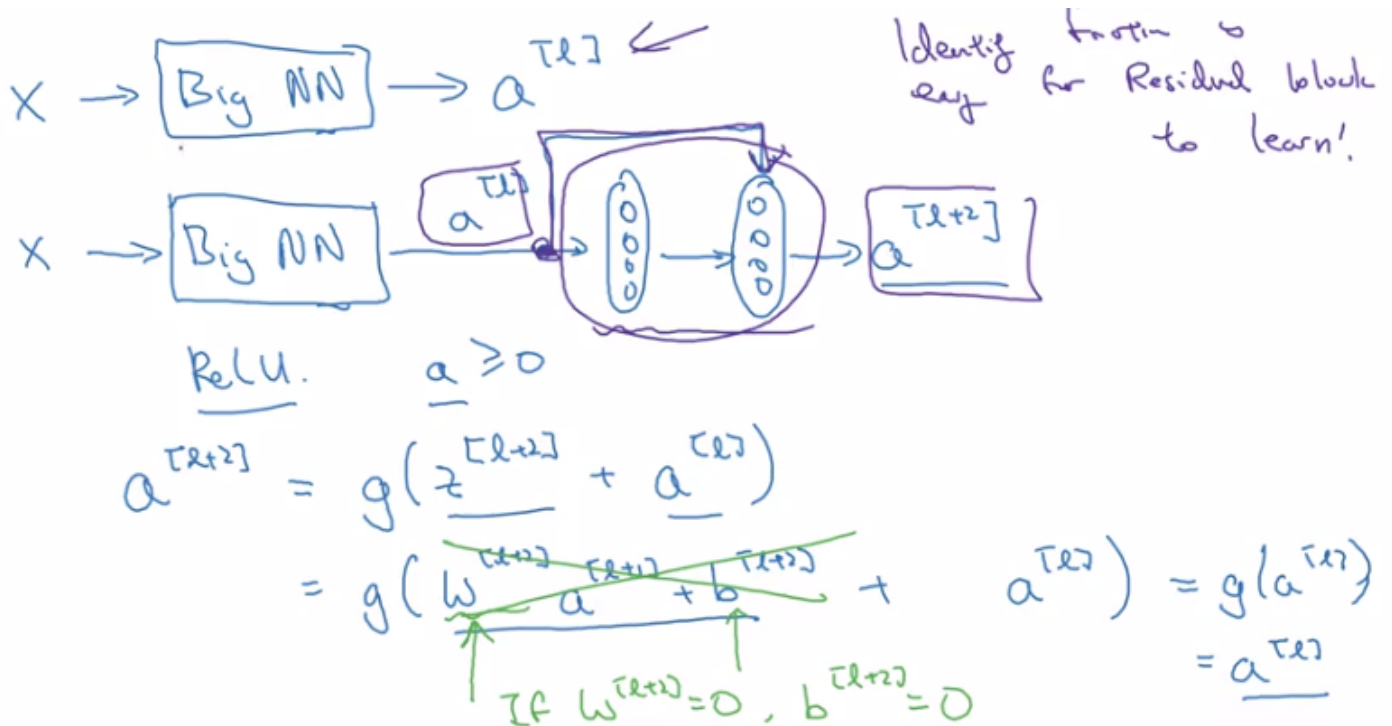 X → Big NN → a^[l]
Identity function is
easy for Residual block
to learn!
X → Big NN → a^[l] → → a^[l+2]
ReLU. a ≥ 0
a^[l+2] = g(z^[l+2] + a^[l])
= g(W^[l+2] a^[l+1] + b^[l+2] + a^[l]) = g(a^[l])
= a^[l]
If W^[l+2]=0, b^[l+2]=0